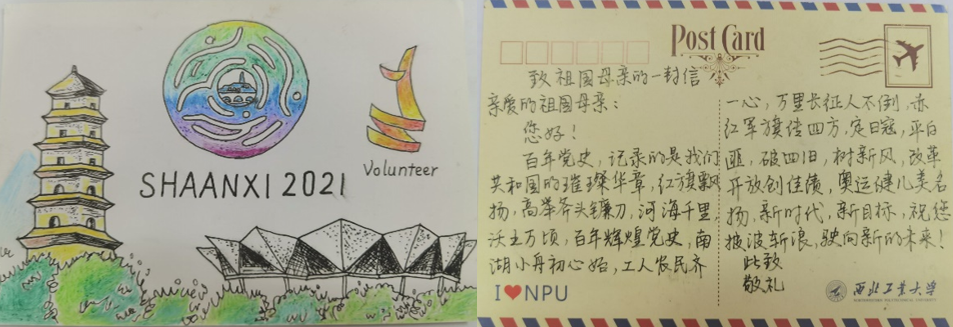 SHAANXI 2021
Volunteer
Post Card
致祖国母亲的一封信
亲爱的祖国母亲：
您好！
百年党史，记录的是我们
共和国的璀璨华章，红旗飘
扬，高举斧头镰刀，河海千里，
沃土万顷，百年辉煌党史，南
湖小舟初心始，工人农民齐
一心，万里长征人不倒，赤
红军旗传四方，定日寇，平白
匪，破四旧，树新风，改革
开放创佳绩，奥运健儿美名
扬，新时代，新目标，祝您
披波斩浪，驶向新的未来！
此致
敬礼
I❤NPU
西北工业大学
NORTHWESTERN POLYTECHNICAL UNIVERSITY